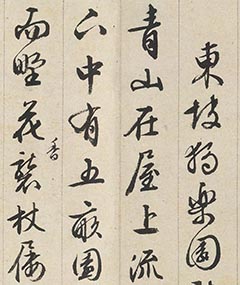 東坡獨樂園
青山在屋上流
下中有五畝園
而野花香襲杖屨